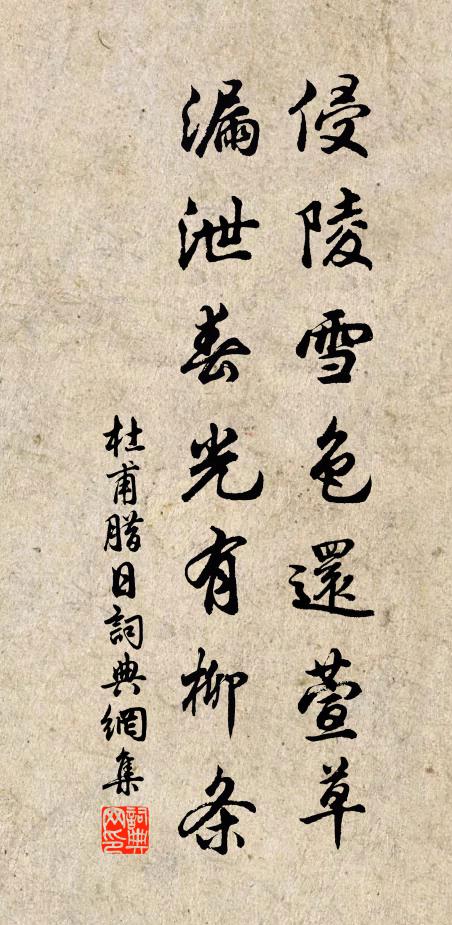 侵陵雪色還萱草
漏泄春光有柳条
杜甫腊日詞典網集
詞典网印